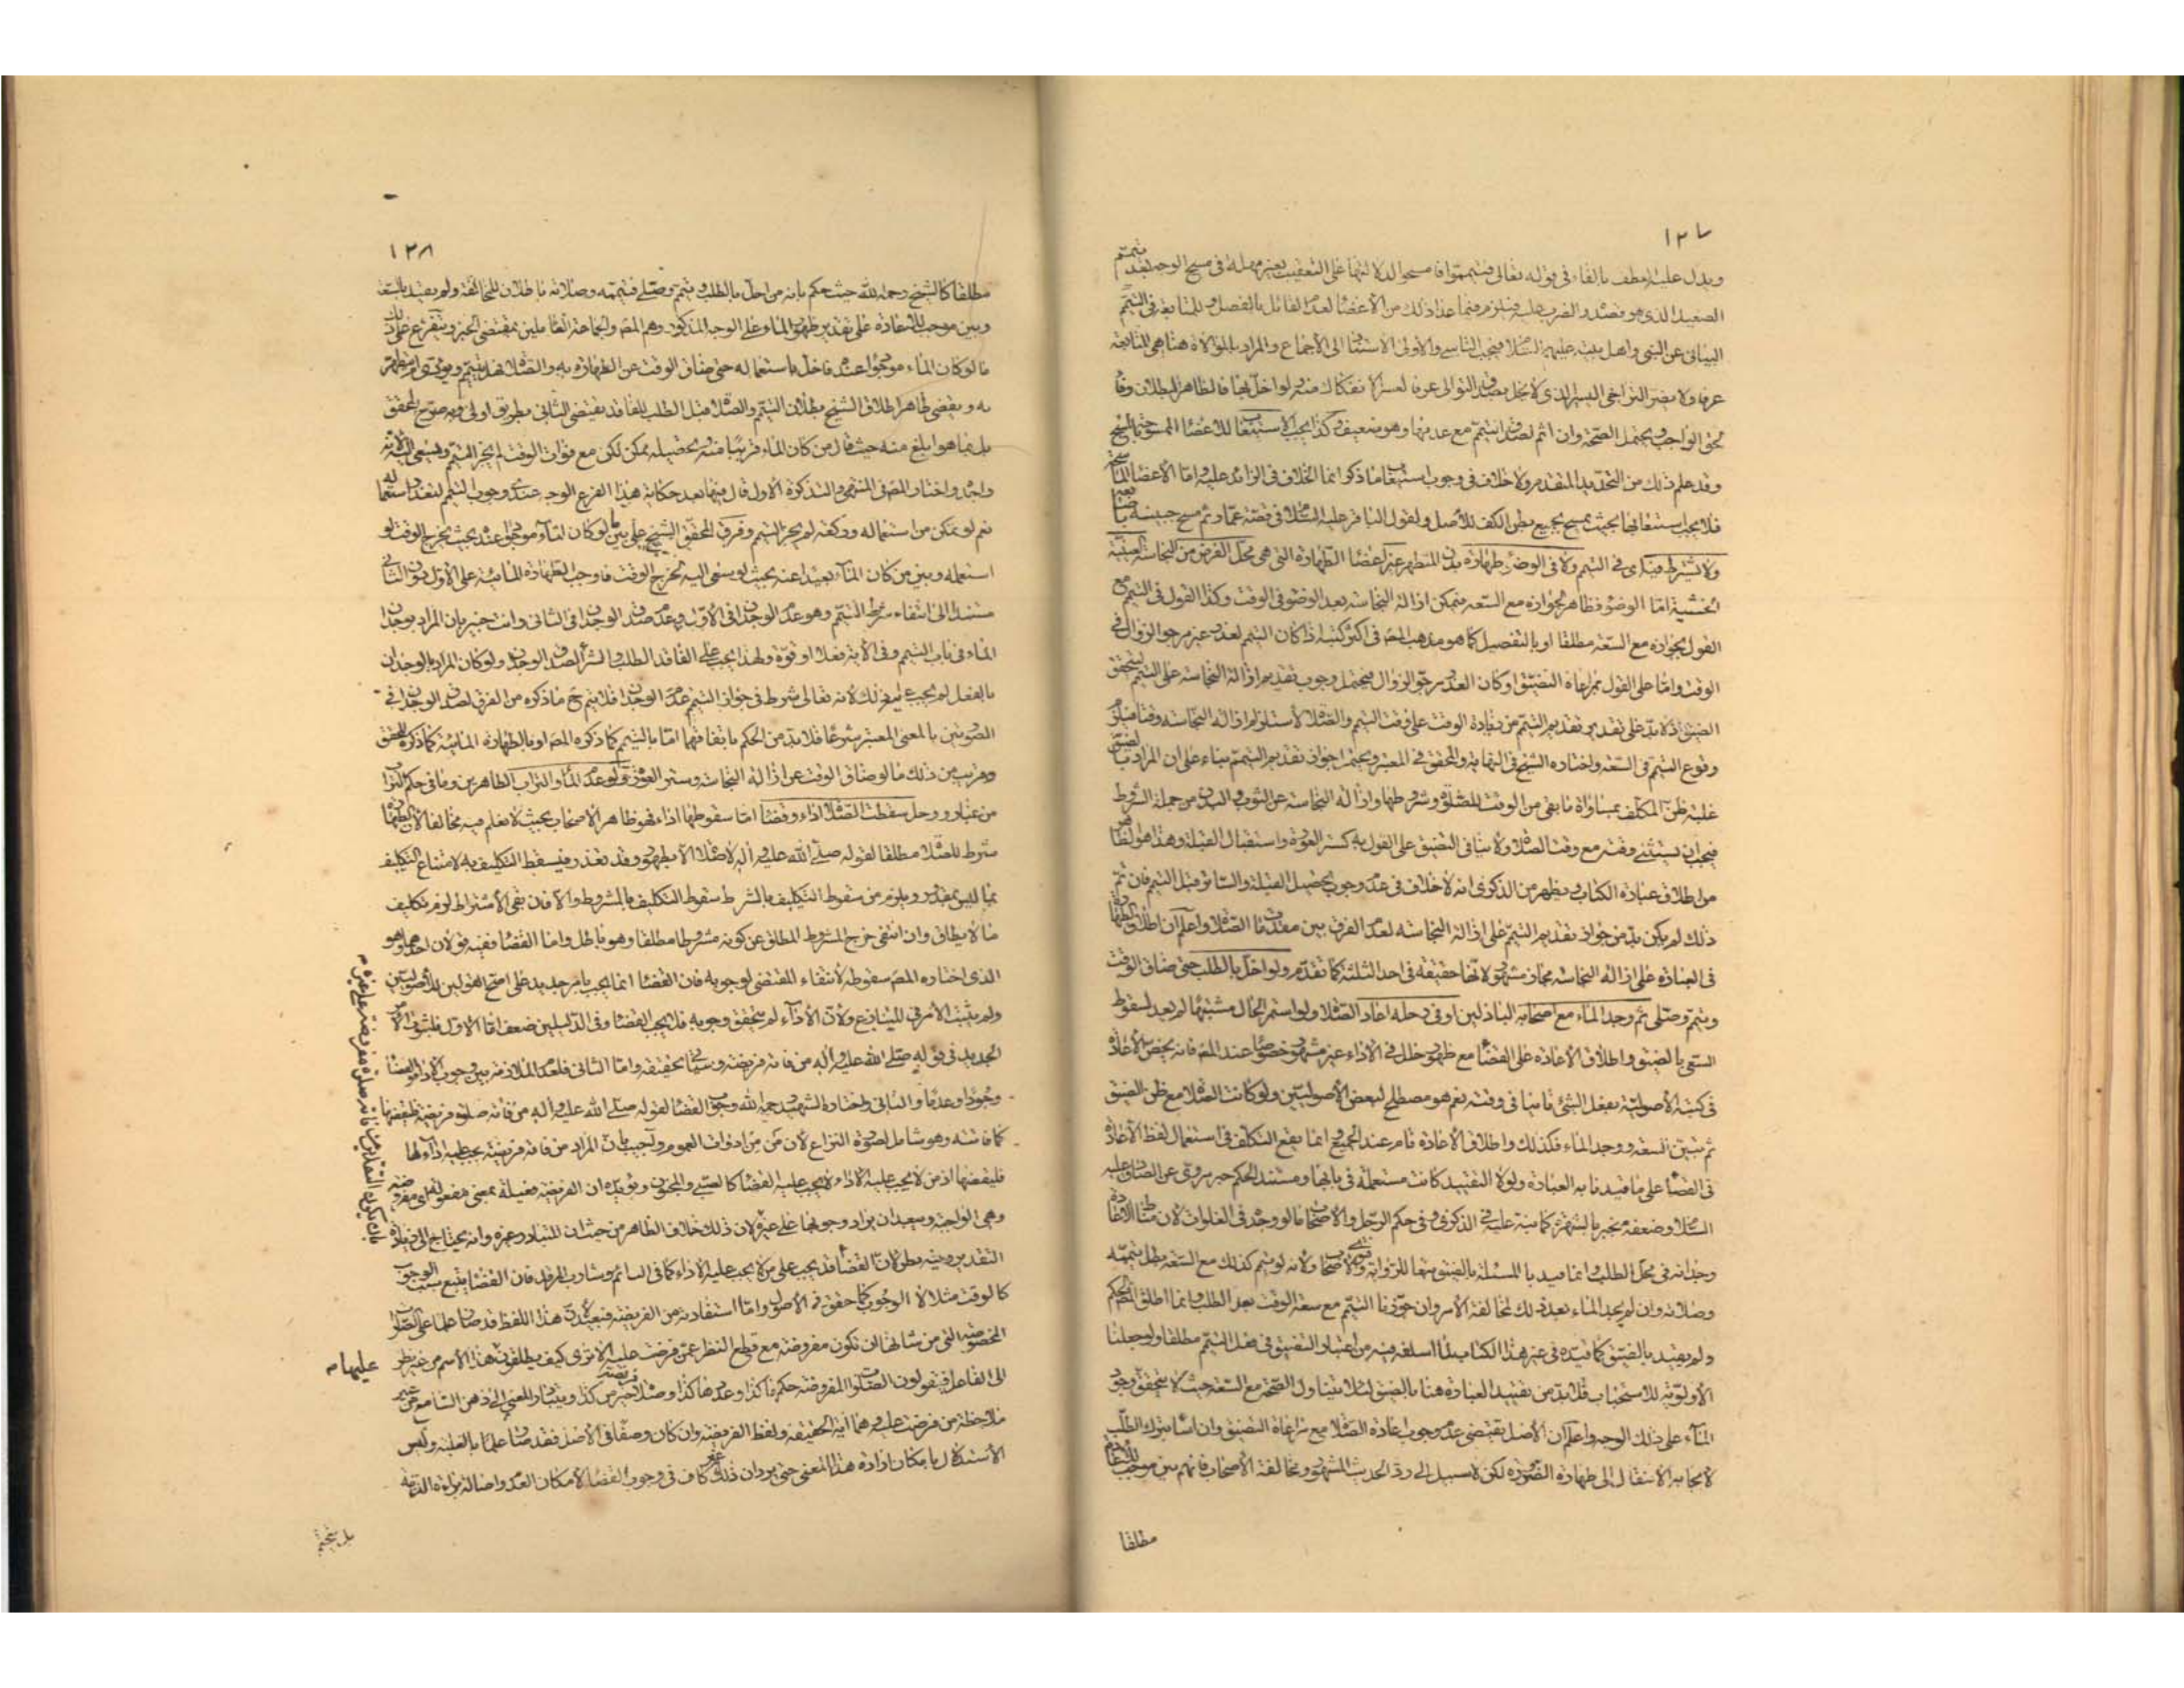 ١٢٧
ويدل عليه العطف بالفاء في قوله تعالى فتيمموا فامسحوا لدلالتها على التعقيب بغير مهلة في مسح الوجه بعد تيمم
الصعيد الذي هو قصده والضرب عليه فيلزم فيما عدا ذلك من الأعضا لعدم القائل بالفصل وللمتابعة في التيمم
البياني عن النبي واهل بيته عليهم السلام فيجب التاسي والأولى الاستناد الى الاجماع والمراد بالموالاة هنا هي المتابعة
عرفا ولا يضر التراخي اليسير الذي لا يخل بصدق التوالي عرفا لعسر الانفكاك منه ولو اخل بها فالظاهر البطلان وفا
بحق الواجب ويحتمل الصحة وان اثم لصدق التيمم مع عدمها وهو ضعيف وكذا يجب الاستيعاب للاعضا الممسوحة بالمسح
وقد علم ذلك من التحديد المتقدم ولا خلاف في وجوب استيعاب ما ذكر انما الخلاف في الزائد عليه اما الاعضا الماسحة
فلا يجب استيعابها بحيث يمسح بجميع بطن الكف للاصل ولقول الباقر عليه السلام في قصة عمار ثم مسح جبينه باصابعه
ولا يشترط فيه اي في التيمم ولا في الوضوء طهارة بدن المتطهر عن اعضا الطهارة التي هي محل الفرض من النجاسة العينية
الخبثية اما الوضوء فظاهر لجوازه مع السعة فيمكن ازالة النجاسة بعد الوضوء في الوقت وكذا القول في التيمم مع
القول بجوازه مع السعة مطلقا او بالتفصيل كما هو مذهب المص في اكثر كتبه اذا كان التيمم لعذر غير مرجو الزوال في
الوقت واما على القول بمراعاة التضيق او كان العذر مرجو الزوال فيحتمل وجوب تقديم ازالة النجاسة على التيمم ليتحقق
الضيق اذ لا بد على تقدير تقديم التيمم من زيادة الوقت على وقت التيمم والصلاة لاستلزام ازالة النجاسة وقتا فيلزم
وقوع التيمم في السعة واختاره الشيخ في النهاية والمحقق في المعتبر ويحتمل جواز تقديم التيمم بناء على ان المراد بالضيق
غلبة ظن المكلف بمساواة ما بقي من الوقت للصلاة وشروطها وازالة النجاسة عن الثوب والبدن من جملة الشروط
فيجب ان يستثنى وقته مع وقت الصلاة ولا ينافي التضيق على القول به كستر العورة واستقبال القبلة وهذا هو الظاهر
من اطلاق عبارة الكتاب ويظهر من الذكرى انه لا خلاف في عدم وجوب تحصيل القبلة والساتر قبل التيمم فان تم
ذلك لم يكن بد من جواز تقديم التيمم على ازالة النجاسة لعدم الفرق بين مقدمات الصلاة واعلم ان اطلاق الطهارة
في العبارة على ازالة النجاسة مجاز مشهور لانها حقيقة في احد الثلثة كما تقدم ولو اخل بالطلب حتى ضاق الوقت
وتيمم وصلى ثم وجد الماء مع اصحابه الباذلين او في رحله اعاد الصلاة ولو استمر الحال مشتبها لم يعد لسقوط
السعي بالضيق واطلاق الاعادة على القضا مع ظهور خلل في الاداء غير مشهور خصوصا عند المص فانه يخص الاعادة
في كتبه الاصولية بفعل الشئ ثانيا في وقته نعم هو مصطلح لبعض الاصوليين ولو كانت الصلاة مع ظن الضيق
ثم تبين السعة ووجد الماء فكذلك واطلاق الاعادة تام عند الجميع انما يقع التكلف في استعمال لفظ الاعادة
في القضا على ما قيدنا به العبارة ولولا التقييد كانت مستعملة في بابها ومستند الحكم خبر مروي عن الصادق عليه
السلام وضعفه ينجبر بالشهرة كما نبه عليه في الذكرى وفي حكم الرحل والاصحاب ما لو وجد في الغلوات لان مناط الاعادة
وجدانه في محل الطلب وانما قيد بالمسئلة بالضيق تبعا للرواية وفتوى الاصحاب ولانه لو تيمم كذلك مع السعة بطل تيممه
وصلاته وان لم يجد الماء بعد ذلك لمخالفة الامر وان جوزنا التيمم مع سعة الوقت بعد الطلب وانما اطلق المص الحكم
ولم يقيد بالضيق كما قيده في غير هذا الكتاب لما اسلفه فيه من اعتبار التضيق في فعل التيمم مطلقا ولو جعلنا
الاولوية للاستحباب فلا بد من تقييد العبارة هنا بالضيق لئلا يتناول الصحة مع السعة حيث لا يتحقق وجود
الماء على ذلك الوجه واعلم ان الاصل يقتضي عدم وجوب اعادة الصلاة مع مراعاة التضيق وان اسا بترك الطلب
لايجابه الانتقال الى طهارة الضرورة لكن لا سبيل الى رد الحديث المشهور ومخالفة الاصحاب فانهم بين موجب للاعادة
مطلقا
١٢٨
مطلقا كالشيخ رحمه الله حيث حكم بانه من اخل بالطلب وتيمم وصلى فتيممه وصلاته باطلان للمخالفة ولم يقيد بالسعة
وبين موجب للاعادة على تقدير ظهور الماء وعلى الوجه المذكور وهم المص والجماعة العاملين بمقتضى الخبر ويتفرع على ذلك
ما لو كان الماء موجودا عنده فاخل باستعماله حتى ضاق الوقت عن الطهارة به والصلاة فهل يتيمم ويؤدي ام يتطهر
به ويقضي ظاهر اطلاق الشيخ بطلان التيمم والصلاة قبل الطلب للفاقد يقتضي الثاني بطريق اولى وبه صرح المحقق
بل بما هو ابلغ منه حيث قال من كان الماء قريبا منه وتحصيله ممكن لكن مع فوات الوقت لم يجز التيمم ويسعى اليه لانه
واجد واختار المص في المنتهى والتذكرة الاول قال فيها بعد حكاية هذا الفرع الوجه عندي وجوب التيمم لتعذر استعماله
نعم لو تمكن من استعماله وركعة لم يجز التيمم وفرق المحقق الشيخ علي بين ما لو كان الماء موجودا عنده بحيث يخرج الوقت لو
استعمله وبين من كان الماء بعيدا عنه بحيث لو سعى اليه لخرج الوقت فاوجب الطهارة المائية على الاول دون الثاني
مستندا الى انتفاء شرط التيمم وهو عدم الوجدان في الاول وعدم صدق الوجدان في الثاني وانت خبير بان المراد بوجدان
الماء في باب التيمم وفي الاية فعلا او قوة ولهذا يجب على الفاقد الطلب والشراء لصدق الوجدان ولو كان المراد بالوجدان
بالفعل لم يجب عليه ذلك لانه تعالى شرط في جواز التيمم عدم الوجدان فلا يتم ح ما ذكره من الفرق لصدق الوجدان في
الصورتين بالمعنى المعتبر شرعا فلا بد من الحكم باتفاقهما اما بالتيمم كما ذكره المص او بالطهارة المائية كما ذكره المحقق
وقريب من ذلك ما لو ضاق الوقت عن ازالة النجاسة وستر العورة ولو عدم الماء والتراب الطاهرين وما في حكم التراب
من غبار ووحل سقطت الصلاة اداء وقضا اما سقوطها اداء فهو ظاهر الاصحاب بحيث لا نعلم فيه مخالفا لان الطهارة
شرط للصلاة مطلقا لقوله صلى الله عليه واله لا صلاة الا بطهور وقد تعذر فيسقط التكليف به لامتناع التكليف
بما ليس بمقدور ويلزم من سقوط التكليف بالشرط سقوط التكليف بالمشروط والا فان بقي الاشتراط لزم تكليف
ما لا يطاق وان انتفى خرج المشروط المطلق عن كونه مشروطا مطلقا وهو باطل واما القضا ففيه قولان احدهما وهو
الذي اختاره المص سقوطه لانتفاء المقتضي لوجوبه فان القضا انما يجب بامر جديد على اصح القولين للاصوليين
ولم يثبت الامر في المتنازع ولان الاداء لم يتحقق وجوبه فلا يجب القضا وفي الدليلين ضعف اما الاول فلثبوت الامر
الجديد في قوله صلى الله عليه واله من فاته فريضة وسياتي تحقيقه واما الثاني فلعدم الملازمة بين وجوب الاداء والقضا
وجودا وعدما والثاني واختاره الشهيد رحمه الله وجوب القضا لقوله صلى الله عليه واله من فاته صلوة فريضة فليقضها
كما فاتته وهو شامل لصورة النزاع لان من من ادوات العموم واجيب بان المراد من فاته فريضة يجب عليه اداءها
فليقضها اذ من لا يجب عليه الاداء لا يجب عليه القضا كالصبي والمجنون ويؤيده ان الفريضة فعيلة بمعنى مفعولة اي مفروضة
وهي الواجبة ويبعد ان يراد وجوبها على غيره لان ذلك خلاف الظاهر من حيث ان المتبادر غيره وانه يحتاج الى زيادة
بان يكون التقدير من فاته صلوة مفروضة على غيره م
التقدير وفيه نظر لان القضا قد يجب على من لا يجب عليه الاداء كما في النائم وشارب المرقد فان القضا يتبع سبب الوجوب
كالوقت مثلا لا الوجوب كما حقق في الاصول واما استفادته من الفريضة فبعيد لان هذا اللفظ قد صار علما على الصلوات
المخصوصة التي من شانها ان تكون مفروضة مع قطع النظر عمن فرضت عليه الا ترى كيف يطلقون هذا الاسم من غير نظر
عليها م
الى الفاعل فيقولون الصلوات المفروضة حكمها كذا وعددها كذا وصلاة فريضة خير من كذا ويتبادر المعنى الى ذهن السامع من غير
ملاحظة من فرضت عليه وهما اية الحقيقة ولفظ الفريضة وان كان وصفا في الاصل فقد صار علما بالغلبة وليس
الاستدلال بامكان ارادة هذا المعنى حتى يرد ان ذلك غير كاف في وجوب القضا لامكان العدم واصالة براءة الذمة
بل نتجشم